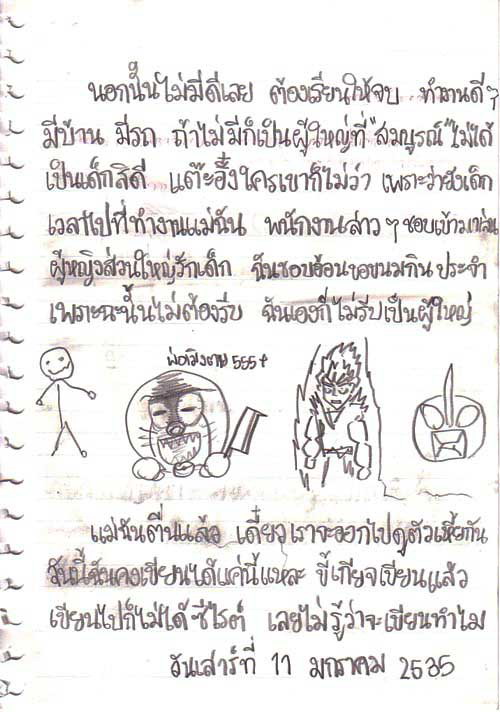 นอกนั้นไม่มีดีเลย ต้องเรียนให้จบ ทำงานดีๆ
มีบ้าน มีรถ ถ้าไม่มีก็เป็นผู้ใหญ่ที่ "สมบูรณ์" ไม่ได้
เป็นเด็กสิดี แต๊ะอั๋งใครเขาก็ไม่ว่า เพราะว่ายังเด็ก
เวลาไปที่ทำงานแม่ฉัน พนักงานสาวๆ ชอบเข้ามาเล่น
ผู้หญิงส่วนใหญ่รักเด็ก ฉันชอบอ้อนขอขนมกิน ประจำ
เพราะฉะนั้นไม่ต้องรีบ ฉันเองก็ไม่รีบเป็นผู้ใหญ่
พ่อมึงตาย 555+
แม่ฉันตื่นแล้ว เดี๋ยวเราจะออกไปดูตัวเหี้ยกัน
วันนี้ฉันคงเขียนได้แค่นี้แหละ ขี้เกียจเขียนแล้ว
เขียนไปก็ไม่ได้ซีไรต์ เลยไม่รู้ว่าจะเขียนทำไม
วันเสาร์ที่ 11 มกราคม 2535